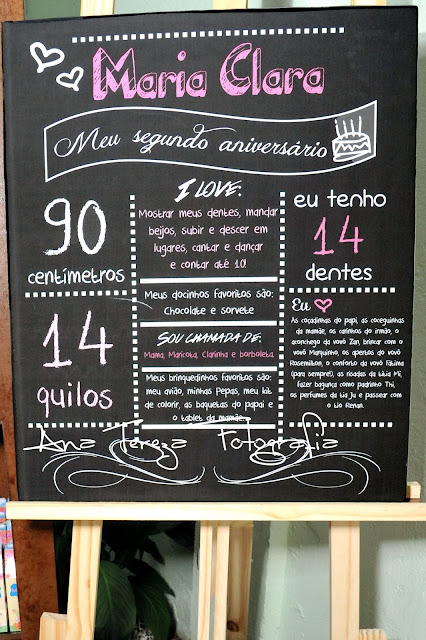 Maria Clara
Meu segundo aniversário
90
centímetros
14
quilos
I LOVE:
Mostrar meus dentes, mandar
beijos, subir e descer em
lugares, cantar e dançar
e contar até 10!
Meus docinhos favoritos são:
Chocolate e sorvete
SOU CHAMADA DE:
Mama, Maricota, Clarinha e borboleta
Meus brinquedinhos favoritos são:
meu avião, minhas Pepas, meu kit
de colorir, as baquetas do papai e
o tablet da mamãe.
eu tenho
14
dentes
Eu
As coçadinhas do papi, as coceguinhas
da mamãe, os carinhos do irmão, o
aconchego da vovó Zan, brincar com o
vovô Marquinho, os apertos do vovô
Rosemilton, o conforto da vovó Fátima
(para sempre!), as risadas da titia Mi,
fazer bagunça com padrinho Thi,
os perfumes da tia Ju e passear com
o tio Renan.
Ana Tereza Fotografia